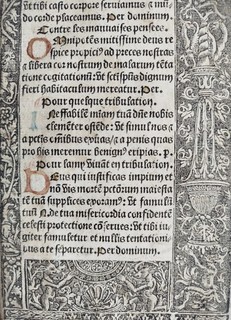 ut tibi casto corpore seruiamus et mũ
do corde placeamus. Per dominum.
Contre les mauuaises pensees.
Omnipotẽs mitissime deus re
spice propicị ad preces nostras
et libera cor nostrum de malarum tẽta
tione cogitationũ: Ut sctĩ spũs dignum
fieri habitaculum mereatur. Per.
Pour quelque tribulation.
Ineffabilẽ miam tuã dñe nobis
clemẽter ostẽde: Ut simul nos et
a pctĩs omnibus exuas: et a penis quas
pro his meremur benigne eripias. p.
Pour lamy viuãt en tribulation.
Deus qui iustificas impium et
nõ vis mortẽ pctõrum maiesta
tẽ tuã supplices exoramus: Ut famulũ
tuũ N. de tua misericordia confidentẽ
celesti protectione cõserues: Ut tibi iu
giter famuletur et nullis tentationi
bus a te separetur. Per dominum.